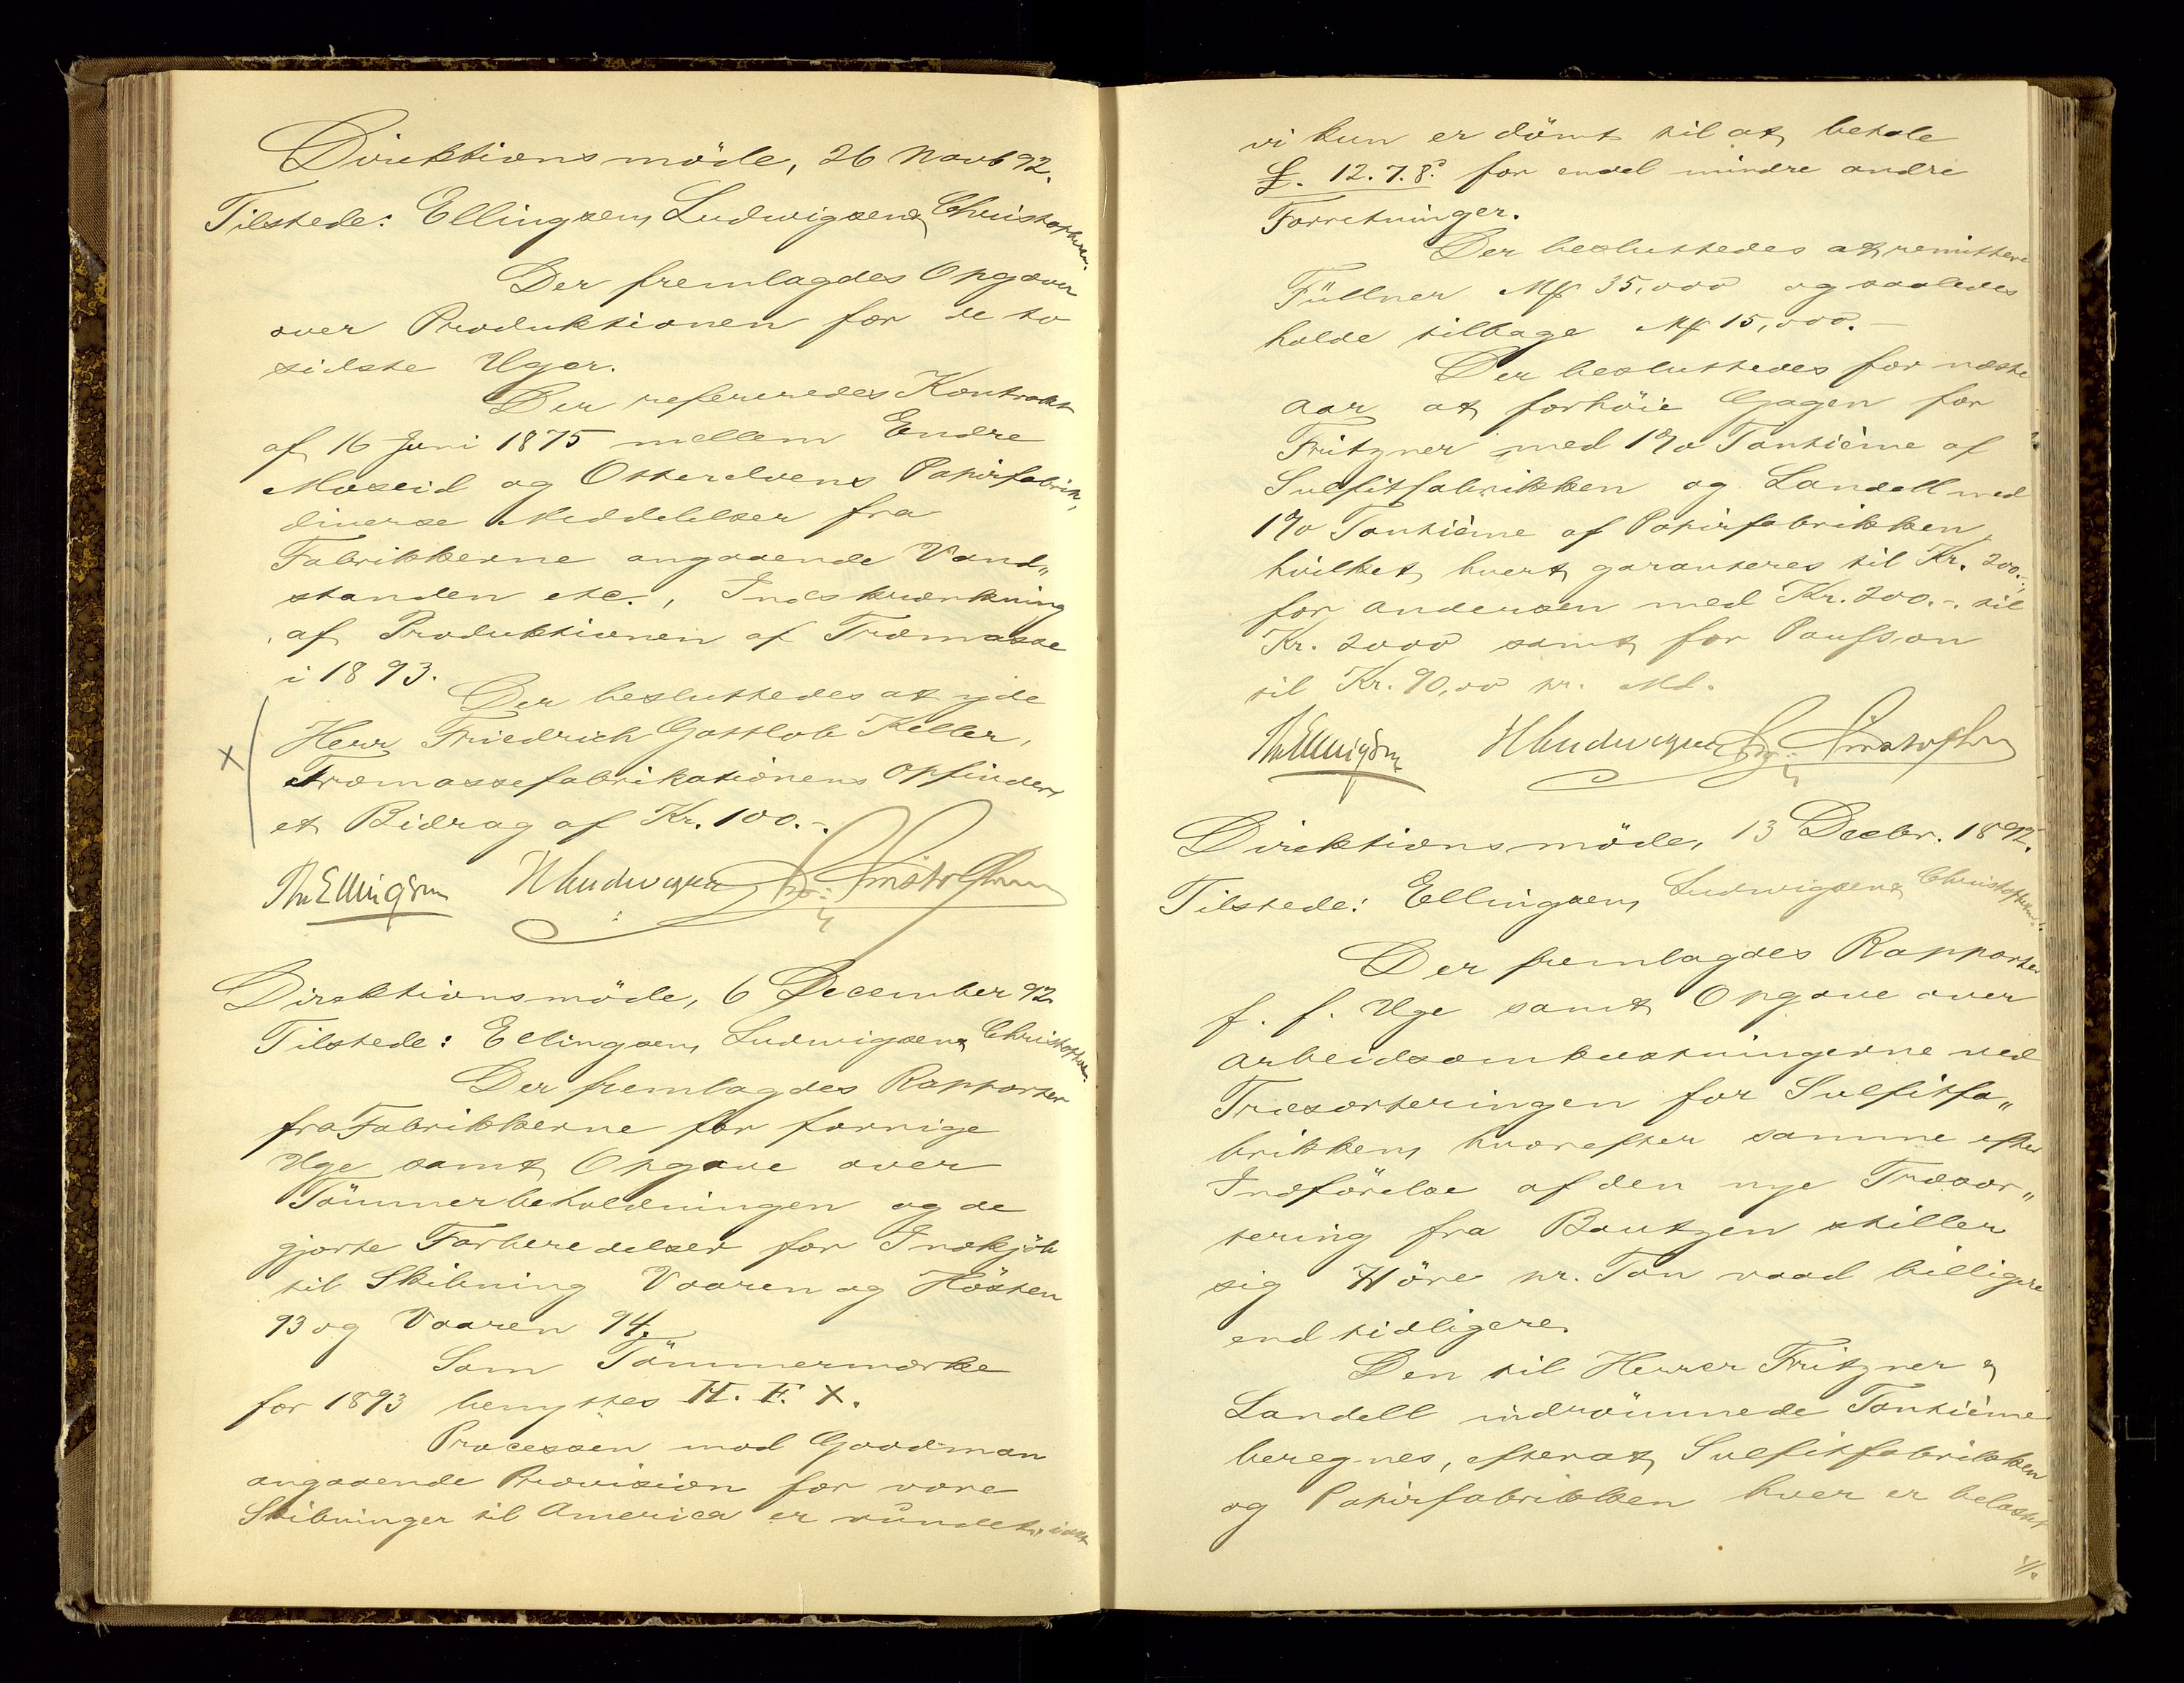 Direktionsmöde, 26 Novb 92.
Tilstede: Ellingsen, Ludwigsen & Christophersen.
Der fremlagdes Opgaver
over Produktionen for de to
sidste Uger.
Der refereredes Kontrakt
af 16 Juni 1875 mellem Endre
Moseid og Otterelvens Papirfabrik,
diverse Meddelelser fra
Fabrikkerne angaaende Vand„
standen etc., Indskrænkning
af Produktionen af Træmasse
i 1893.
Der besluttedes at yde
Herr Friedrich Gottlob Keller,
Træmassefabrikationens Opfinder,
et Bidrag af Kr. 100.-.
Th Ellingsen H Ludwigsen Chr. Christophersen
Direktionsmöde, 6 December 92.
Tilstede: Ellingsen, Ludwigsen & Christophersen.
Der fremlagdes Rapporter
fra Fabrikkerne for forrige
Uge samt Opgave over
Tömmerbeholdningen og de
gjorte Forberedelser for Indkjöb
til Skibning Vaaren og Hösten
93 og Vaaren 94.
Som Tömmermærke
for 1893 benyttes H. F. X.
Processen mod Goodman
angaaende Provision for vore
Skibninger til America er vundet, idet
vi kun er dömt til at betale
£. 12.7.8. for endel mindre andre
Forretninger.
Der besluttedes at remittere
Füllner Mk 35,000 og saaledes
holde tilbage Mk 15,000.-
Der besluttedes for næste
Aar at forhöie Gagen for
Fritzner med 1% Tantième af
Sulfitfabrikken og Landell med
1% Tantième af Papirfabrikken,
hvilket hvert garanteres til Kr. 200.-,
for Andersen med Kr. 200.-. til
Kr. 2000 samt for Paulsson
til Kr. 90,00 pr. Md.
Th Ellingsen H Ludwigsen Chr. Christophersen
Direktionsmöde, 13 Decbr. 1892.
Tilstede: Ellingsen, Ludwigsen & Christophersen.
Der fremlagdes Rapporter
f. f. Uge samt Opgave over
Arbeidsomkostningerne ved
Træsorteringen for Sulfitfa„
brikken, hvorefter samme efter
Indförelse af den nye Træsor„
tering fra Bautzen stiller
sig 41 öre pr. Ton vaad billigere
end tidligere.
Den til Herrer Fritzner &
Landell indrömmede Tantième
beregnes, efterat Sulfitfabrikken
og Papirfabrikken hver er belastet